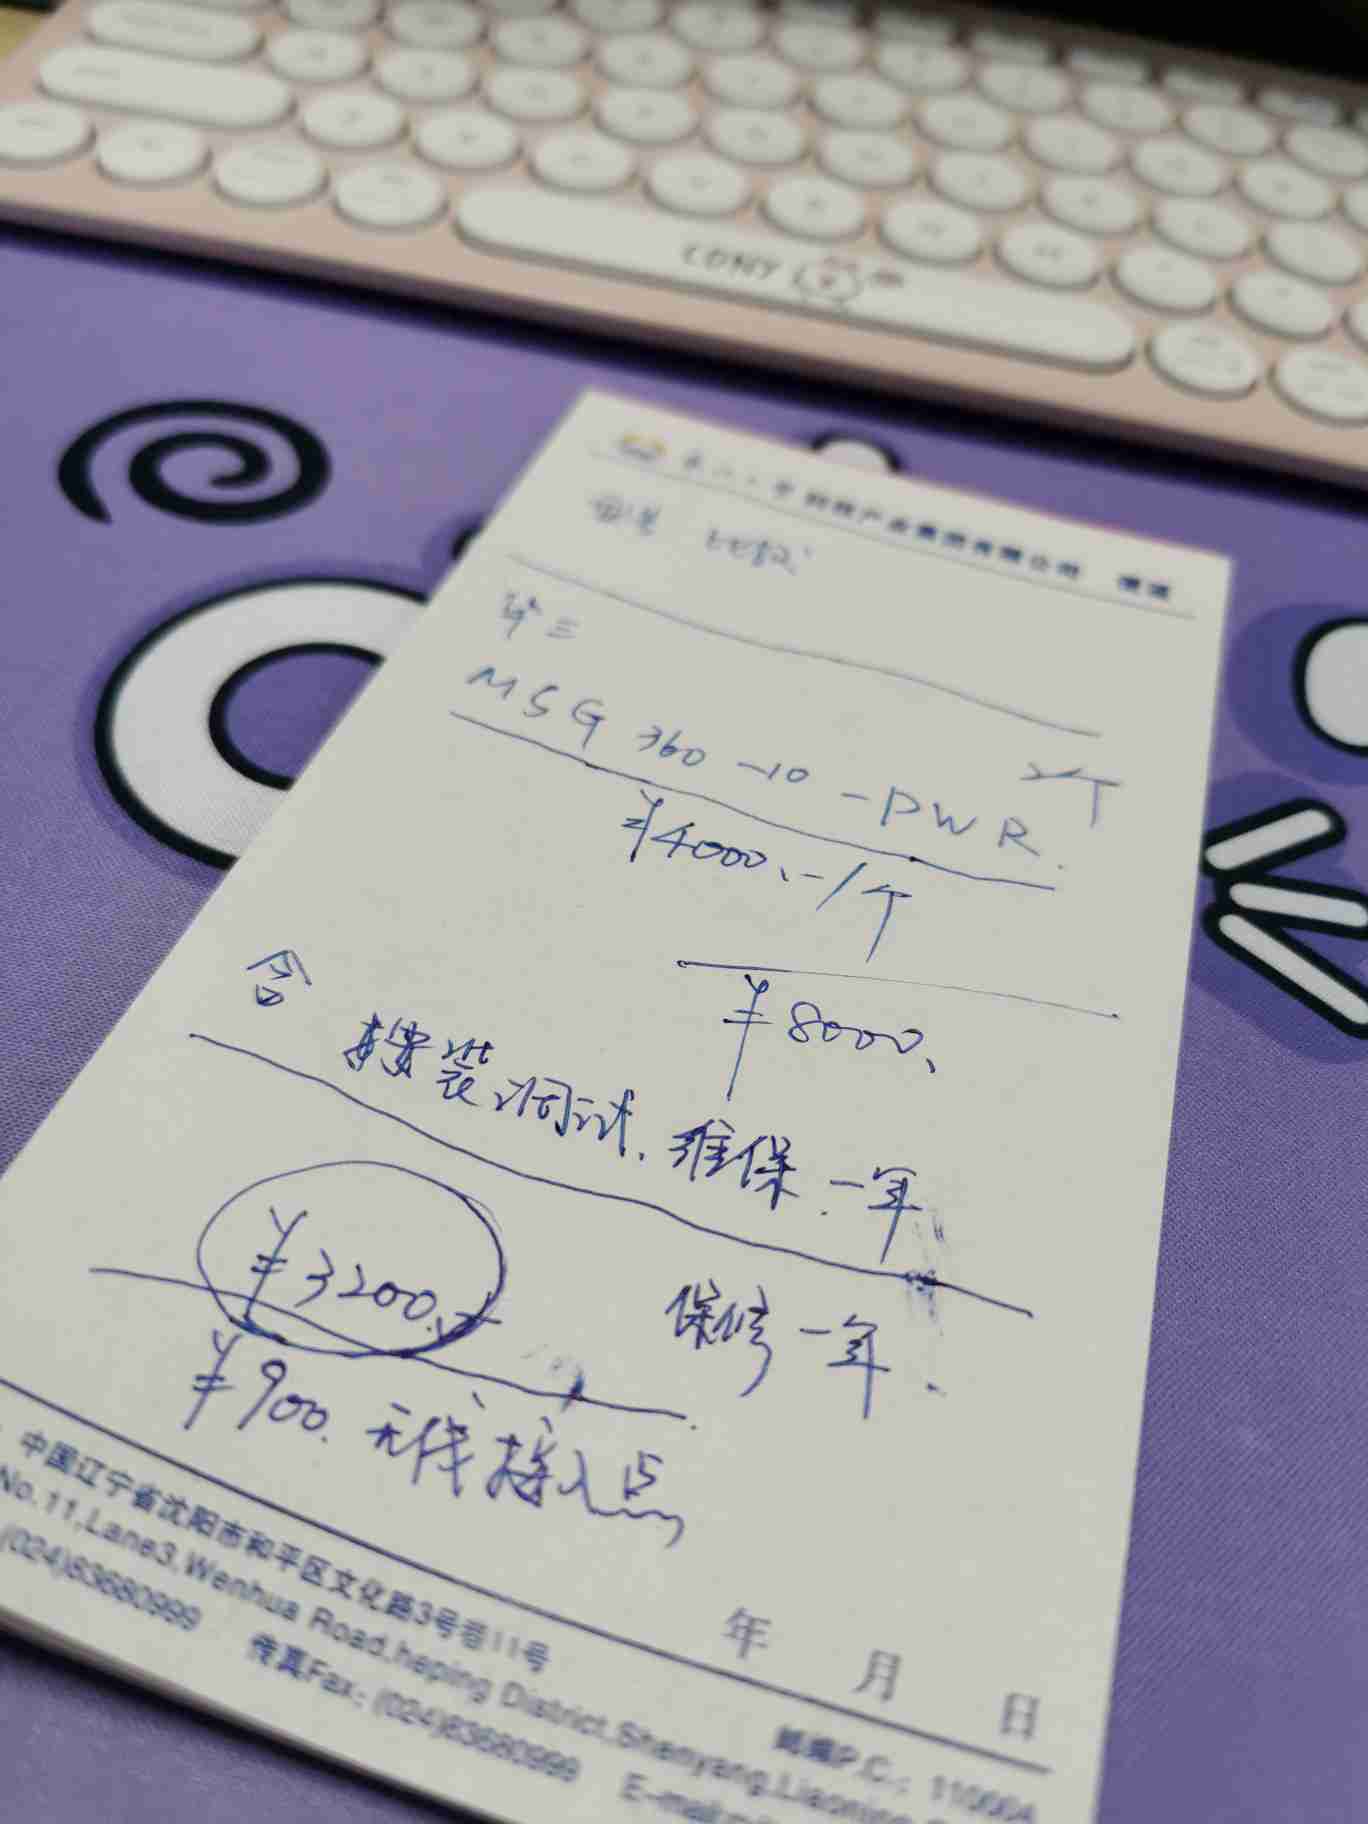 CONY
科技产业集团有限公司 便笺
MSG360-10-PWR. 2个
¥4000.-/个
¥8000.
含
安装调试、维保一年
¥3200.
保修一年.
¥900. 无线接入点
年 月 日
中国辽宁省沈阳市和平区文化路3号巷11号 邮编P.C.: 110004
No.11,Lane3,Wenhua Road,heping District,Shenyang,Liaoning
(024)83680999 传真Fax: (024)83680999 E-mail: